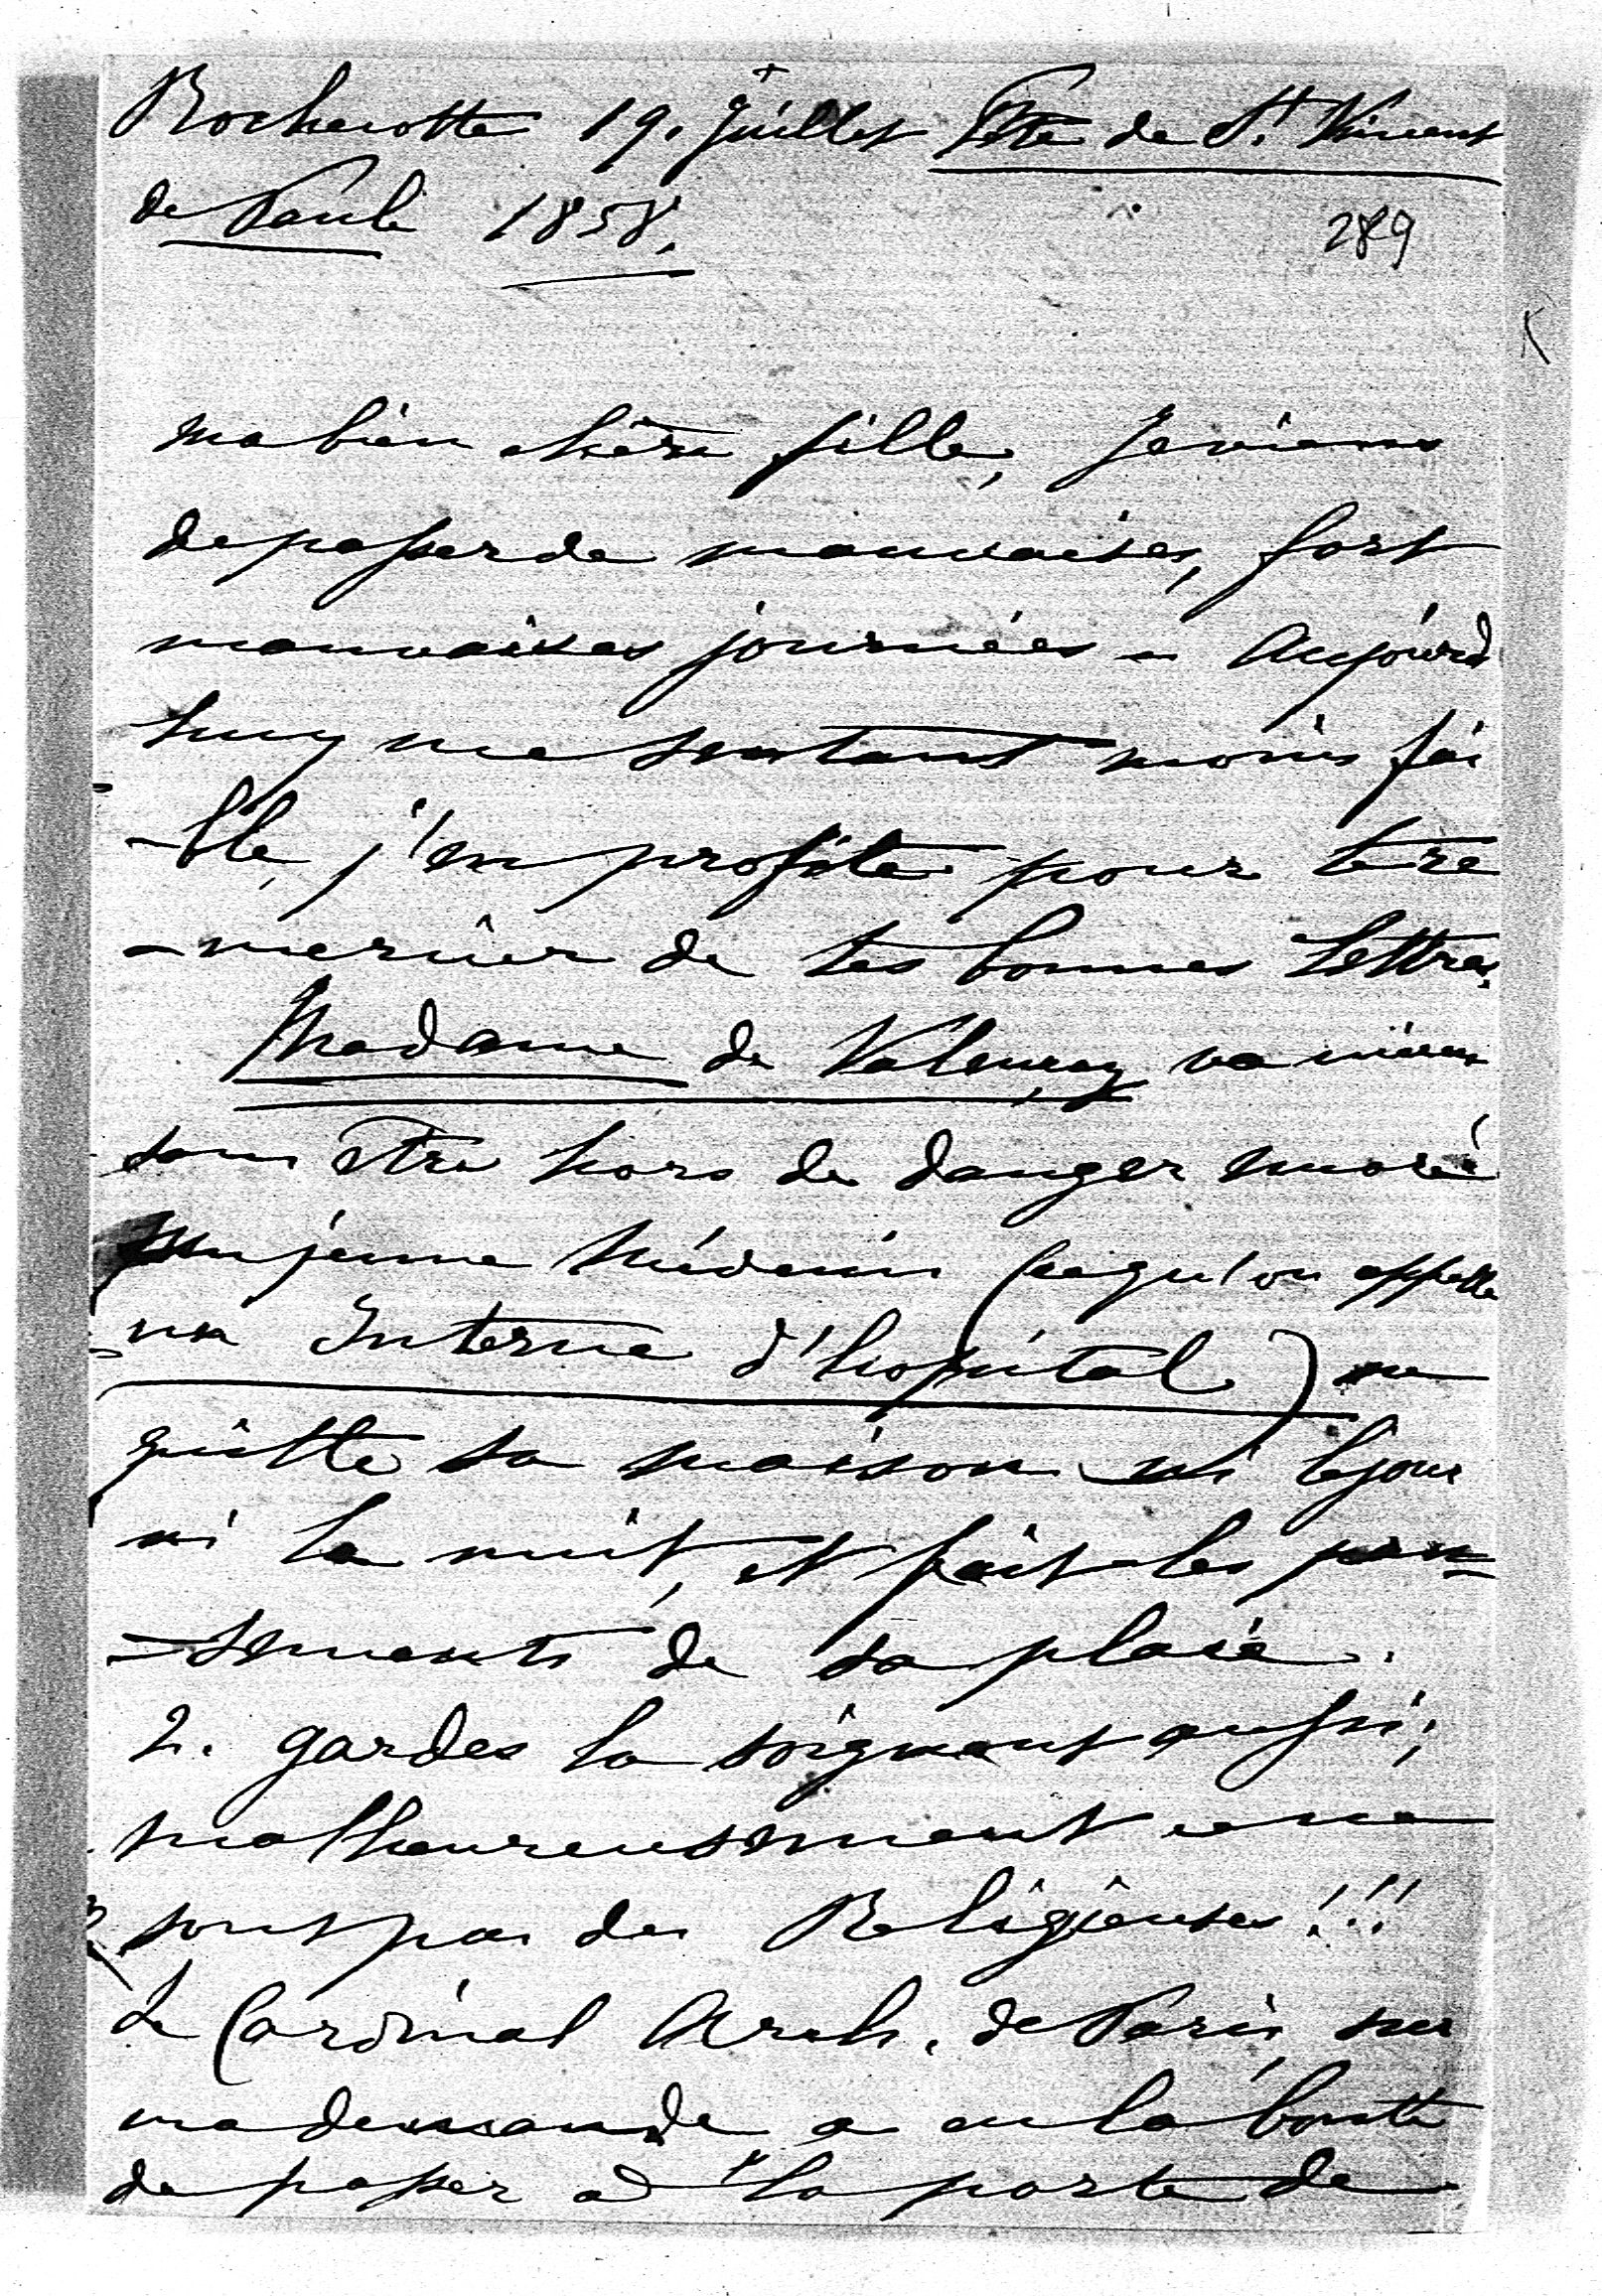 Rochecotte 19. Juillet Fête de St. Vincent
de Paule 1858.
289
ma bien chère fille, Je viens
de passer de mauvaises, fort
mauvaises journées – Aujourd
huy me sentant moins fai
-ble, j'en profite pour te re
-mercier de tes bonnes lettres.
Madame de Valençay va mieux
sans être hors de danger encore
un jeune Médecin (ce qu'on appelle
un Interne d'hopital) ne
quitte sa maison ni le jour
ni la nuit, et fait les pan=
-sements de sa plaie.
2. gardes la soignent aussi;
malheureusement ce ne
sont pas des Religieuses!!!
Le Cardinal Arch. de Paris, sur
ma demande a eu la bonté
de passer à la porte de